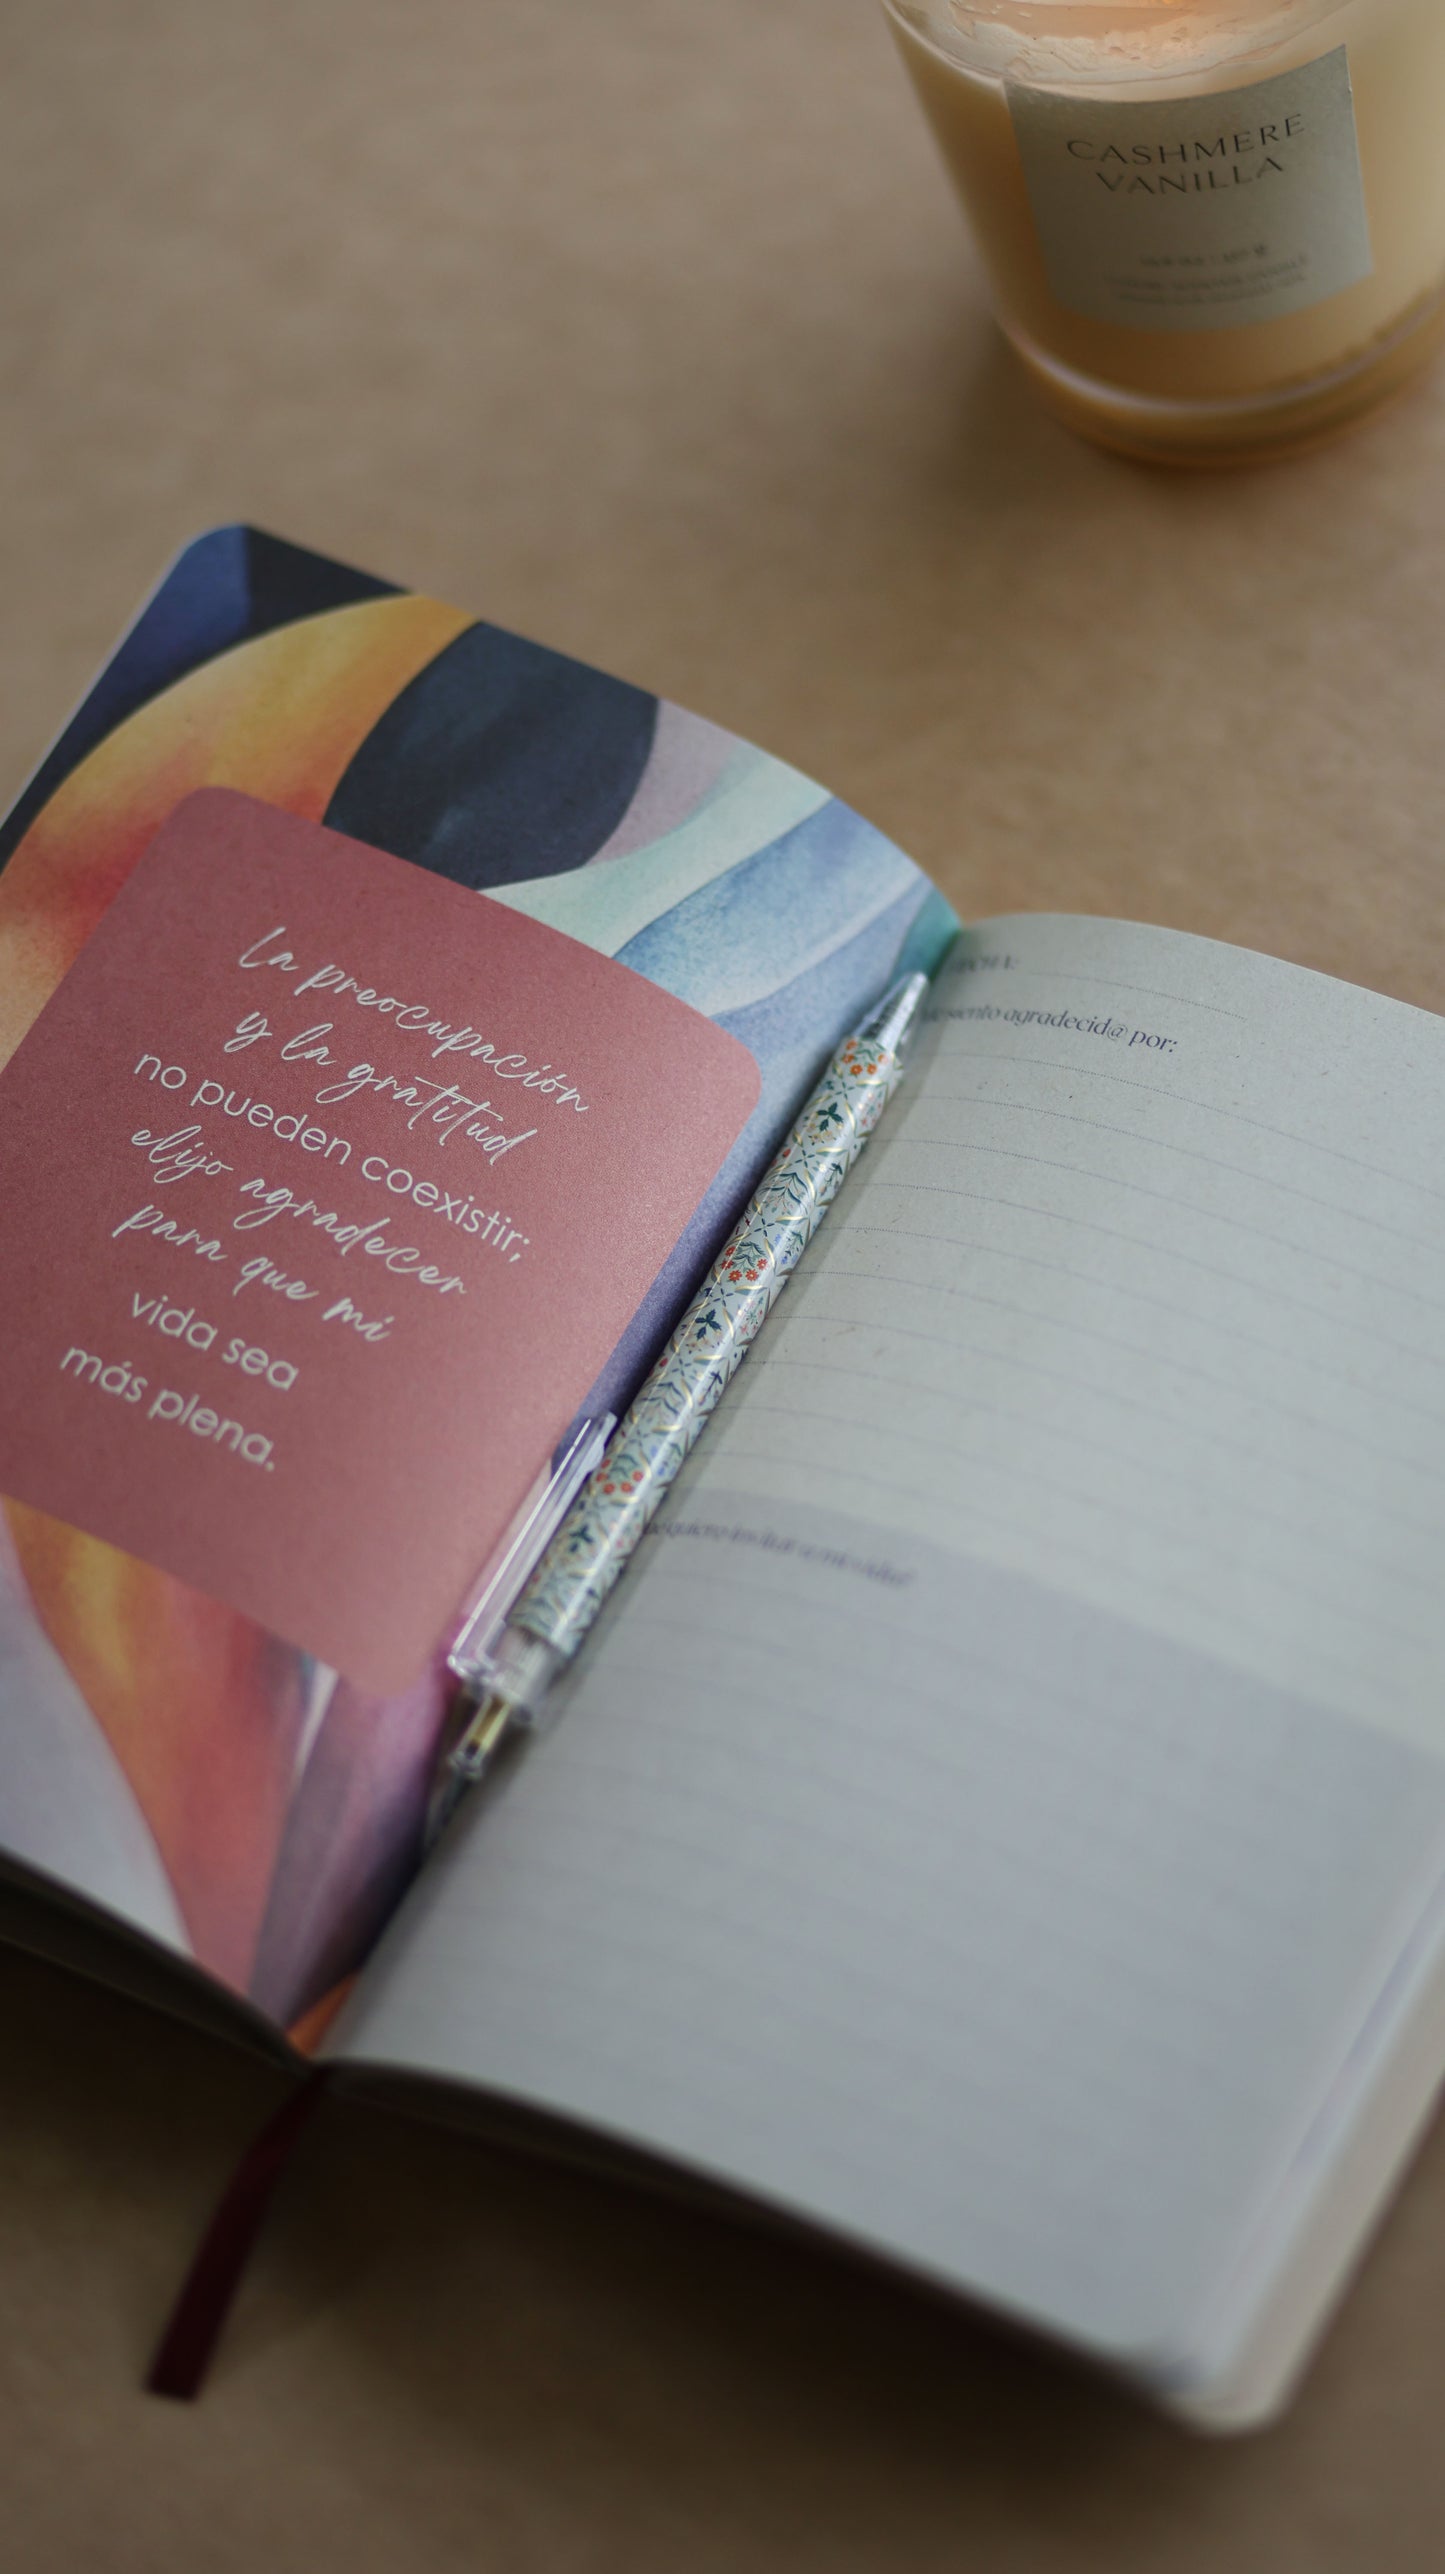 CASHMERE
VANILLA
La preocupación
y la gratitud
no pueden coexistir;
elijo agradecer
para que mi
vida sea
más plena.
FECHA:
siento agradecid@ por:
quiero invitar a mi vida?